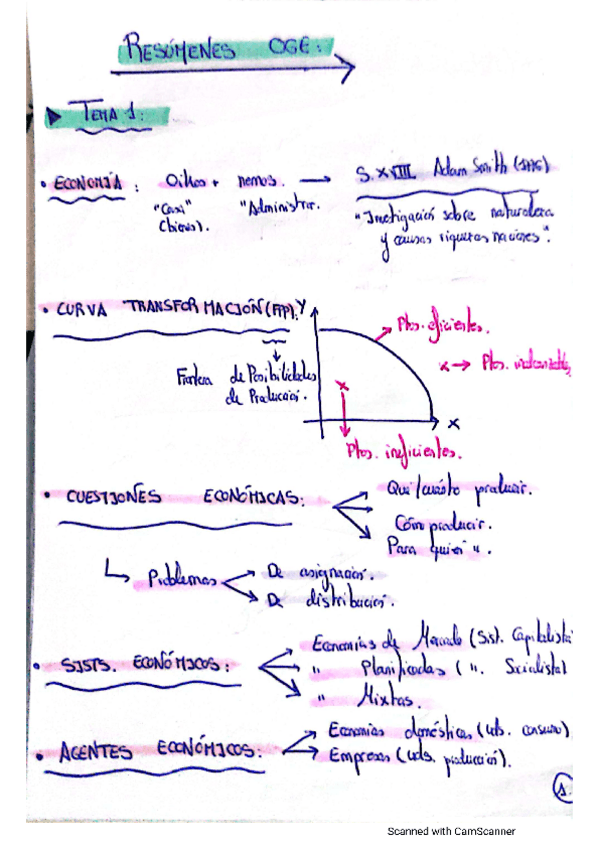 RESÚMENES OGE:
TEMA 1:
• ECONOMÍA: Oikos + nemos. → S. XVIII Adam Smith
"Casa" "Administrar.
(bienes).
"Investigación sobre naturaleza
y causas riquezas naciones".
• CURVA TRANSFORMACIÓN (FPP): Y
Ptos. eficientes.
x → Ptos. inalcanzables
Frontera de Posibilidades
de Producción.
x
X
Ptos. ineficientes.
• CUESTIONES ECONÓMICAS:
Qué/cuánto producir.
Cómo producir.
Para quién ".
Problemas
De asignación.
De distribución.
• SISTS. ECONÓMICOS:
Economías de Mercado (Sist. Capitalista
" Planificadas ( ". Socialista)
" Mixtas.
• AGENTES ECONÓMICOS:
Economías domésticas (uds. consumo)
Empresas (uds. producción).
1.
Scanned with CamScanner